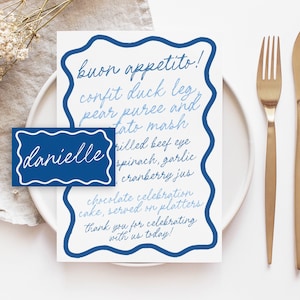 buon appetito!
confit duck leg,
pear puree and
mash
beef eye
spinach, garlic
cranberry jus
chocolate celebration
cake, served on platters
thank you for celebrating
with us today!
danielle